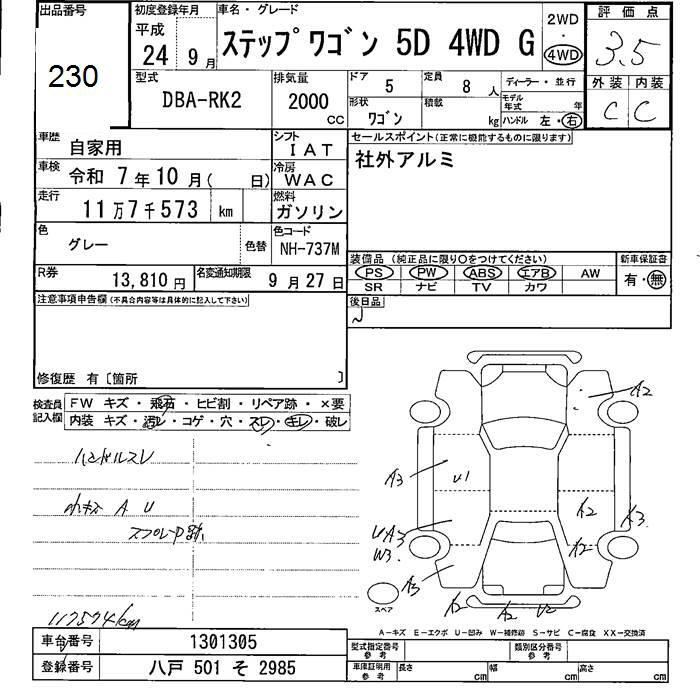 出品番号
230
初度登録年月
平成
24 9月
車名・グレード
ステップワゴン 5D 4WD G
2WD
・
4WD
評価点
3.5
型式
DBA-RK2
排気量
2000
CC
ドア
5
定員
8人
ディーラー・並行
形状
ワゴン
積載
kg
モデル年式
年
ハンドル 左・右
外装 内装
C C
車歴
自家用
シフト
IAT
車検
令和 7年10月( 日)
冷房
WAC
走行
11万7千573 km
燃料
ガソリン
色
グレー
色替
色コード
NH-737M
R券
13,810円
名変通知期限
9月27日
セールスポイント(正常に機能するものに限ります)
社外アルミ
装備品 (純正品に限り○をつけてください)
PS PW ABS エアB AW
SR ナビ TV カワ
新車保証書
有・無
後日品
注意事項申告欄(不具合内容等は具体的に記入して下さい)
修復歴 有〔箇所 〕
検査員記入欄
FW キズ・飛石・ヒビ割・リペア跡・×要
内装 キズ・汚レ・コゲ・穴・スレ・キレ・破レ
ハンドルスレ
小キズ A U
スプレーP跡
117574km
A2
A3
U1
A2
A3
UA3
W3
A2
A3
A2
A2
U2
スペア
A-キズ E-エクボ U-凹み W-補修跡 S-サビ C-腐食 XX-交換済
車台番号
1301305
登録番号
八戸 501 そ 2985
型式指定番号
参考
類別区分番号
参考
車庫証明用
参考
長さ cm
幅 cm
高さ cm